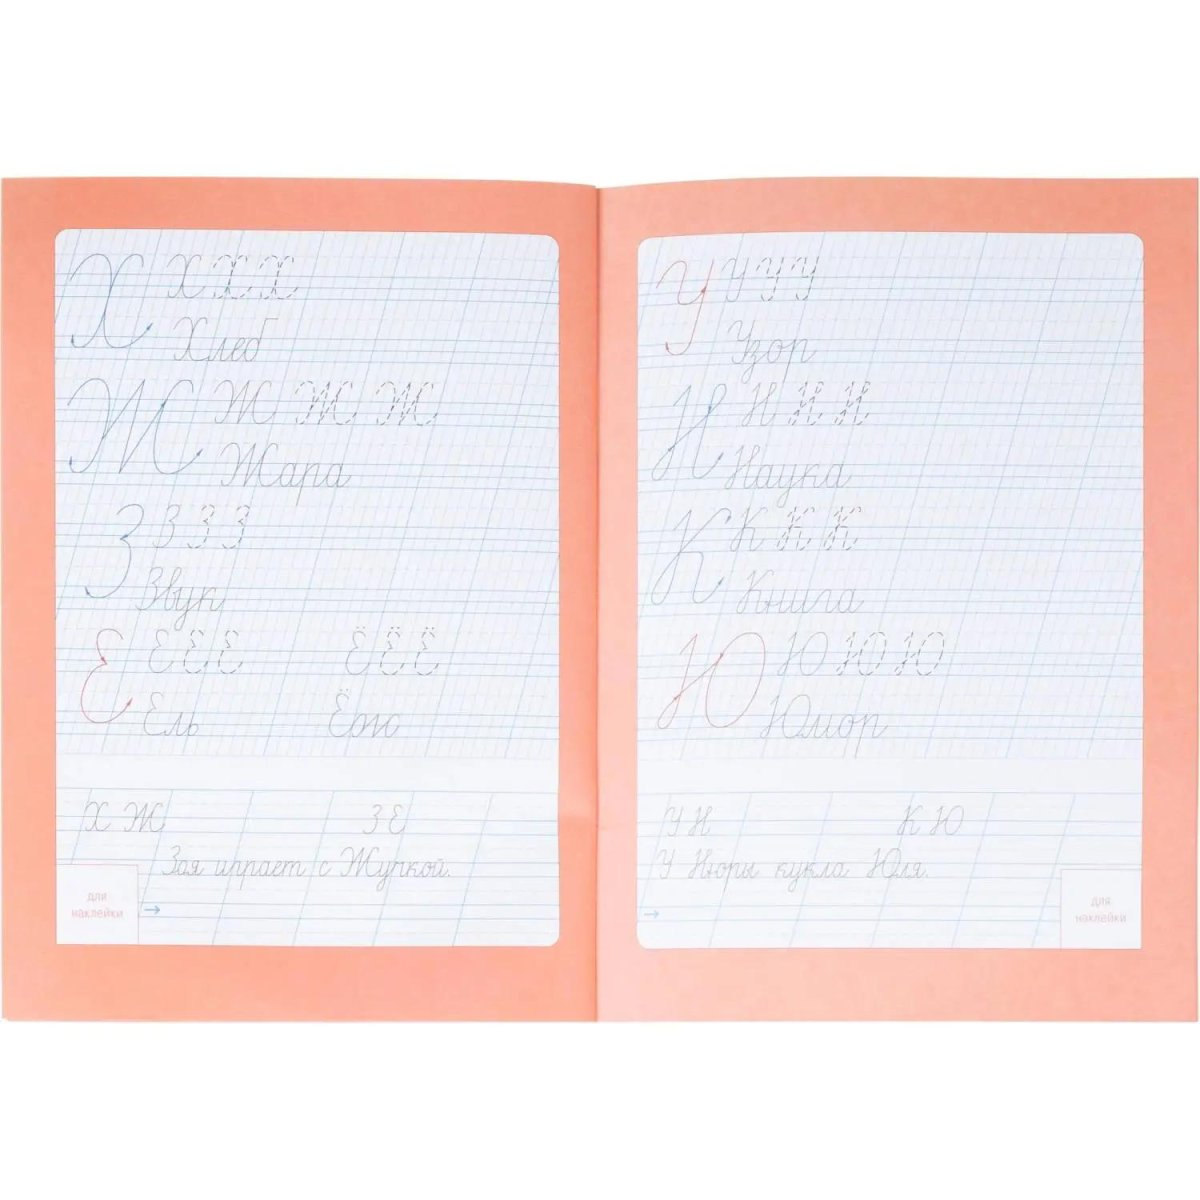 Х Х Х Х
Хлеб
Ж Ж Ж Ж
Жара
З З З З
Звук
Е Е Е Е Ё Ё Ё
Ель Ёж
Х Ж З Е
Зая играет с Жучкой.
для
наклейки
У У У У
Узор
Н Н Н Н
Наука
К К К К
Книга
Ю Ю Ю Ю
Юмор
У Н К Ю
У Нюры кукла Юля.
для
наклейки